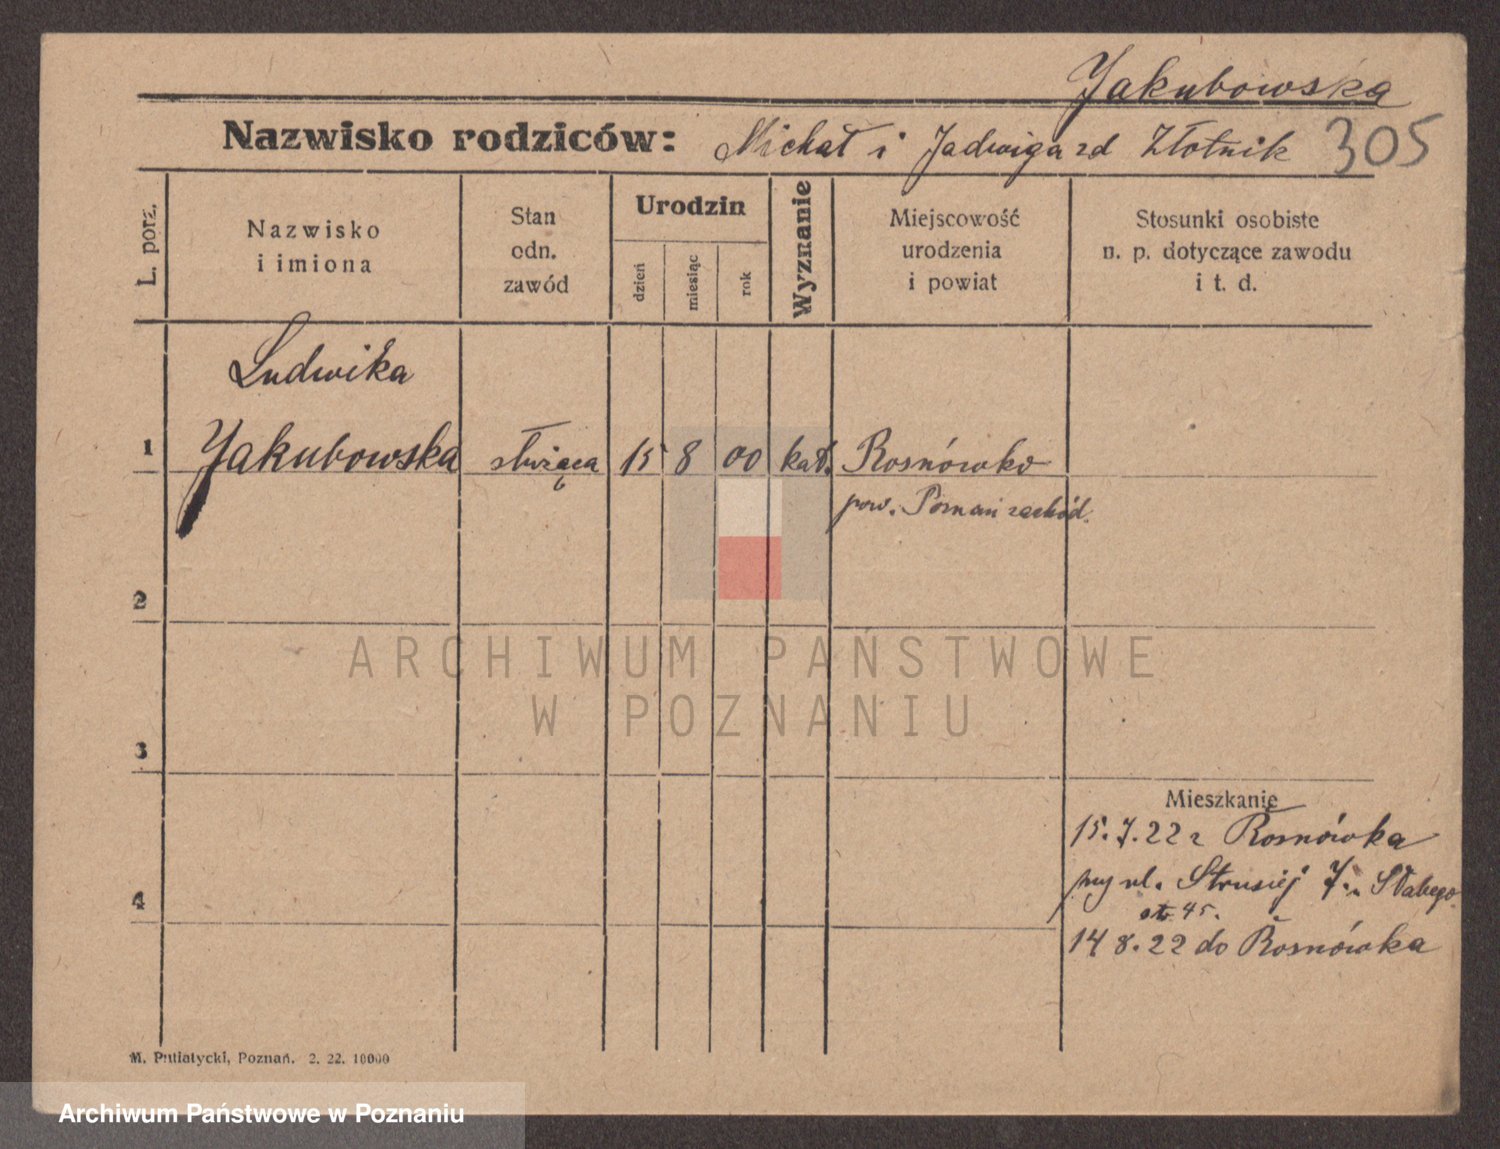 Jakubowska
Nazwisko rodziców: Michał i Jadwiga zd Złotnik 305
L. porz.
Nazwisko
i imiona
Stan
odn.
zawód
Urodzin
dzień
miesiąc
rok
Wyznanie
Miejscowość
urodzenia
i powiat
Stosunki osobiste
n. p. dotyczące zawodu
i t. d.
Ludwika
1 Jakubowska służąca 15 8 00 kat. Rosnówko
pow. Poznań zachód.
2
ARCHIWUM PAŃSTWOWE
W POZNANIU
3
Mieszkanie
15.7.22 z Rosnówka
ul. Strusiej 7. Słabego
4
str. 45.
14 8.22 do Rosnówka
M. Putiatycki, Poznań. 2. 22. 10000
Archiwum Państwowe w Poznaniu